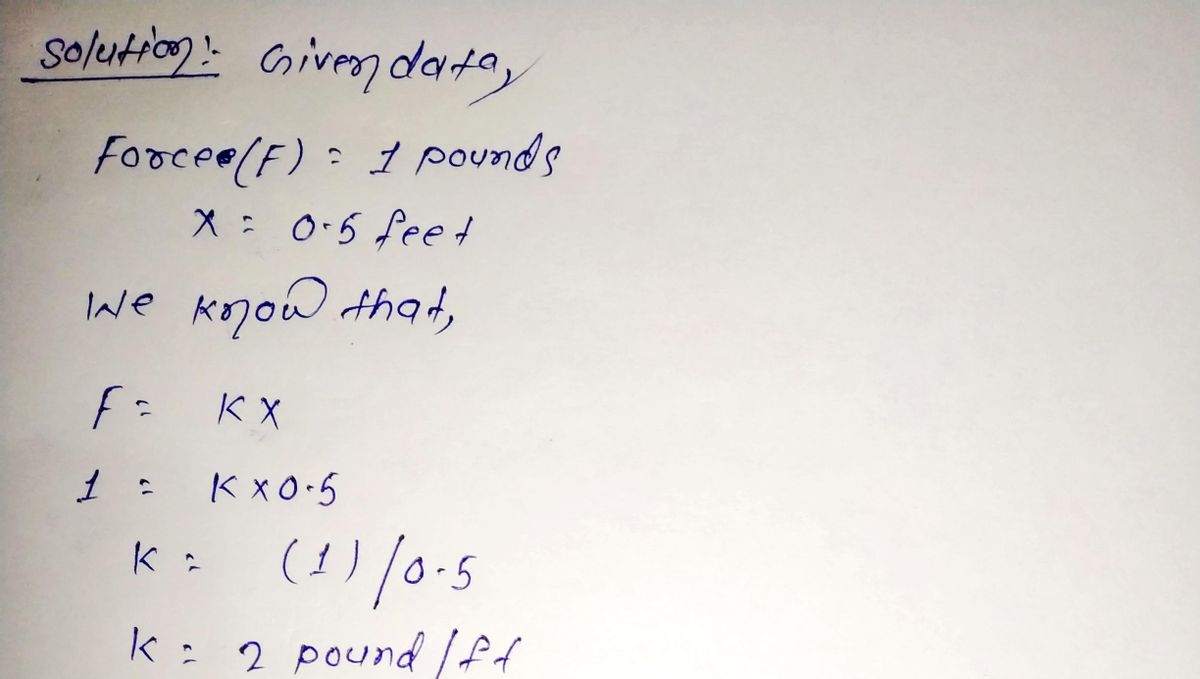 Solution:- Given data,
Forcee(F) = 1 pounds
X = 0.5 feet
We know that,
F = KX
1 = K x 0.5
K = (1)/0.5
K = 2 pound/ft